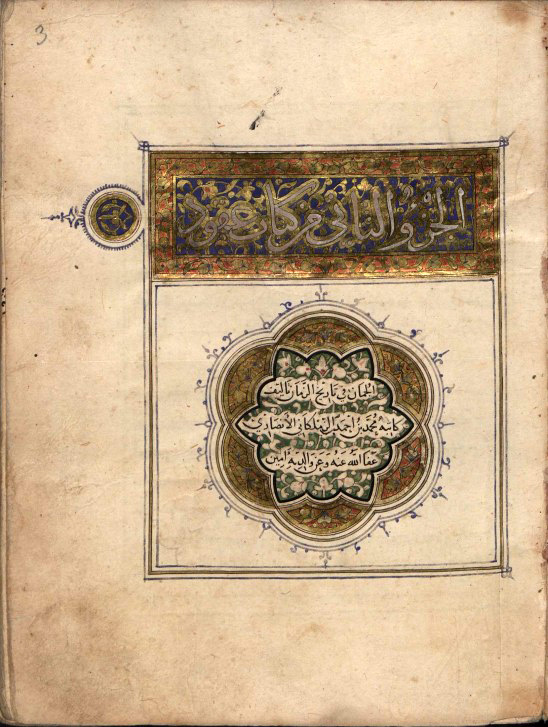 3
الجزؤ الثاني من كتاب عقود
الجمان في تاريخ الزمان تاليف
كاتبه محمد بن احمد الزملكاني الانصاري
عفا الله عنه وعن والديه امين